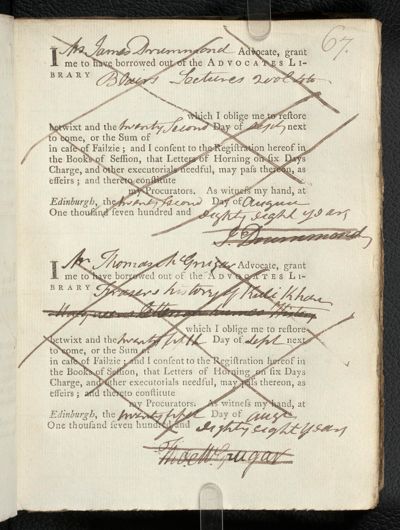 67.
I Mr James Drummond Advocate, grant
me to have borrowed out of the ADVOCATES LI-
BRARY Blairs Lectures 2 vol 4to
which I oblige me to reſtore
betwixt and the twenty Second Day of Septr next
to come, or the Sum of
in caſe of Failzie ; and I conſent to the Regiſtration hereof in
the Books of Seſſion, that Letters of Horning on ſix Days
Charge, and other executorials needful, may paſs thereon, as
effeirs ; and thereto conſtitute
my Procurators. As witneſs my hand, at
Edinburgh, the twenty second Day of August
One thouſand ſeven hundred and eighty eight years
J. Drummond
I Mr Thomas McGrugar Advocate, grant
me to have borrowed out of the ADVOCATES LI-
BRARY Frasers history of Kuli Khan
which I oblige me to reſtore
betwixt and the twenty fifth Day of Septr next
to come, or the Sum of
in caſe of Failzie ; and I conſent to the Regiſtration hereof in
the Books of Seſſion, that Letters of Horning on ſix Days
Charge, and other executorials needful, may paſs thereon, as
effeirs ; and thereto conſtitute
my Procurators. As witneſs my hand, at
Edinburgh, the twenty fifth Day of Augt
One thouſand ſeven hundred and eighty eight years
Tho. McGrugar